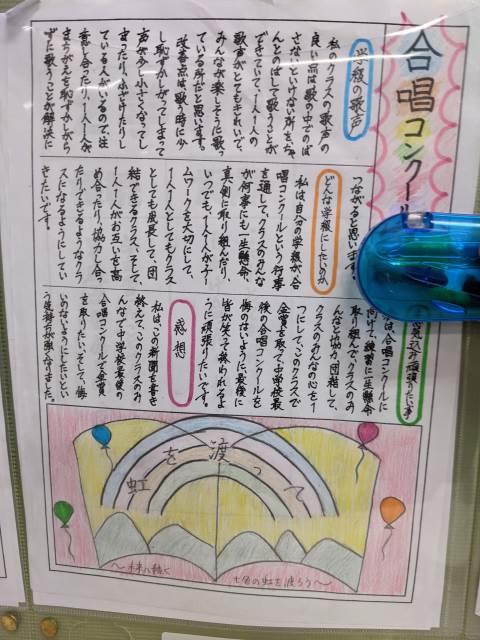 合唱コンクール
学級の歌声
私のクラスの歌声の
良い点は歌の中でのば
さないといけない所をちゃ
んとのばして歌うことが
できていて、1人1人の
歌声がとてもきれいで、
みんなが楽しそうに歌っ
ている所だと思います。
改善点は、歌う時に少
し恥ずかしがってしまって
声が少し小さくなってし
まったり、ふざけたりし
ている人がいるので、注
意し合ったり、1人1人が
まちがえを恥ずかしがら
ずに歌うことが解決に
つながると思います。
どんな学級にしたいのか
私は自分の学級が、合
唱コンクールという行事
を通して、クラスのみんな
が何事にも一生懸命、
真剣に取り組んだり、
いつでも、1人1人がチー
ムワークを大切にして、
1人1人としてもクラス
としても成長して、団
結できるクラス、そして、
1人1人がお互いを高
め合ったり、協力し合っ
たりできるようなクラ
スになるようにしてい
きたいです。
意気込み・頑張りたい事
は、合唱コンクールに
向けて、練習に一生懸命
取り組んで、クラスのみ
んなと協力、団結して、
クラスのみんなの心を1
つにして、このクラスで
金賞を取って、中学校最
後の合唱コンクールを
悔のないように、最後に
皆が笑って終われるよ
うに頑張りたいです。
感想
私はこの新聞を書き
終えて、このクラスのみ
んなで中学校最後の
合唱コンクールで金賞
を取りたい、そして、悔
いのないようにしたいとい
う気持ちが強くなりました。
虹を渡って
〜未来へ続く
七色の虹を渡ろう〜